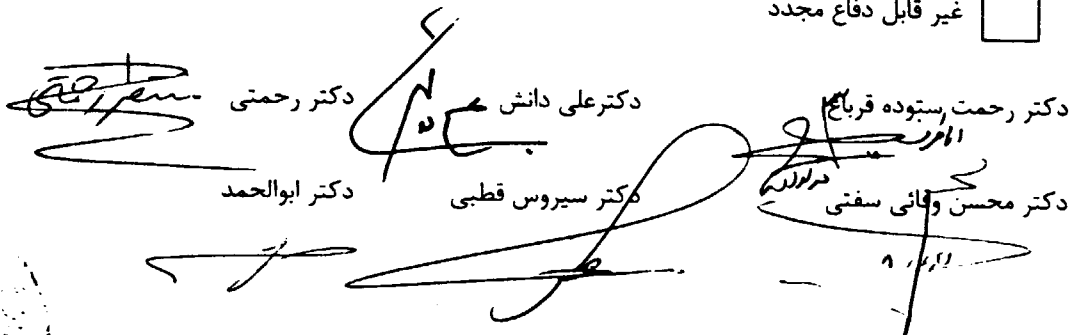 غیر قابل دفاع مجدد
دکتر رحمت ستوده قره‌باغ دکترعلی دانش دکتر رحمتی
دکتر محسن وفائی سفتی دکتر سیروس قطبی دکتر ابوالحمد